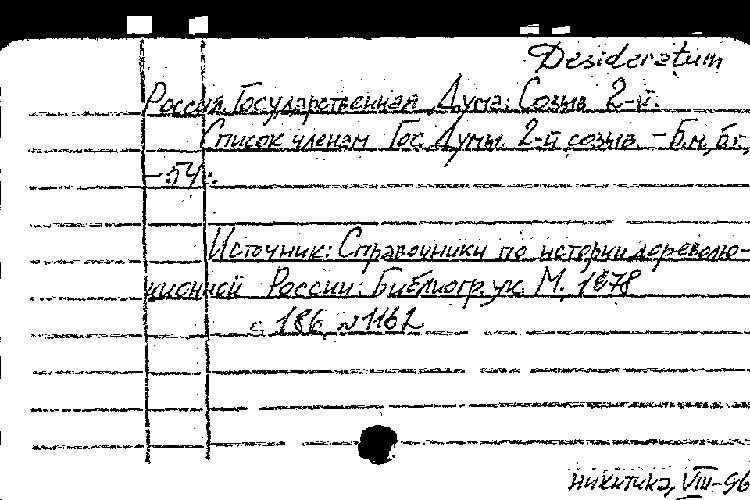 Desideratum
Россия. Государственная Дума. Созыв 2-й.
Список членам Гос. Думы 2-й созыв. - Б.м., б.г.,
- 54 с.
Источник: Справочники по истории дореволю-
ционной России: Библиогр. ук. М. 1978
с. 186, № 1162
никитика, VIII-96